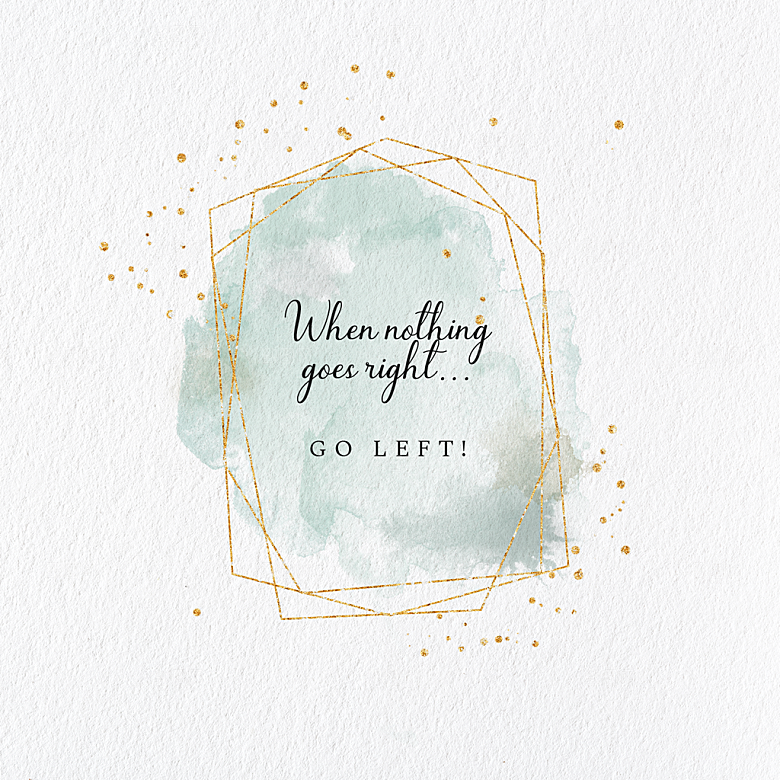 When nothing
goes right...
GO LEFT!